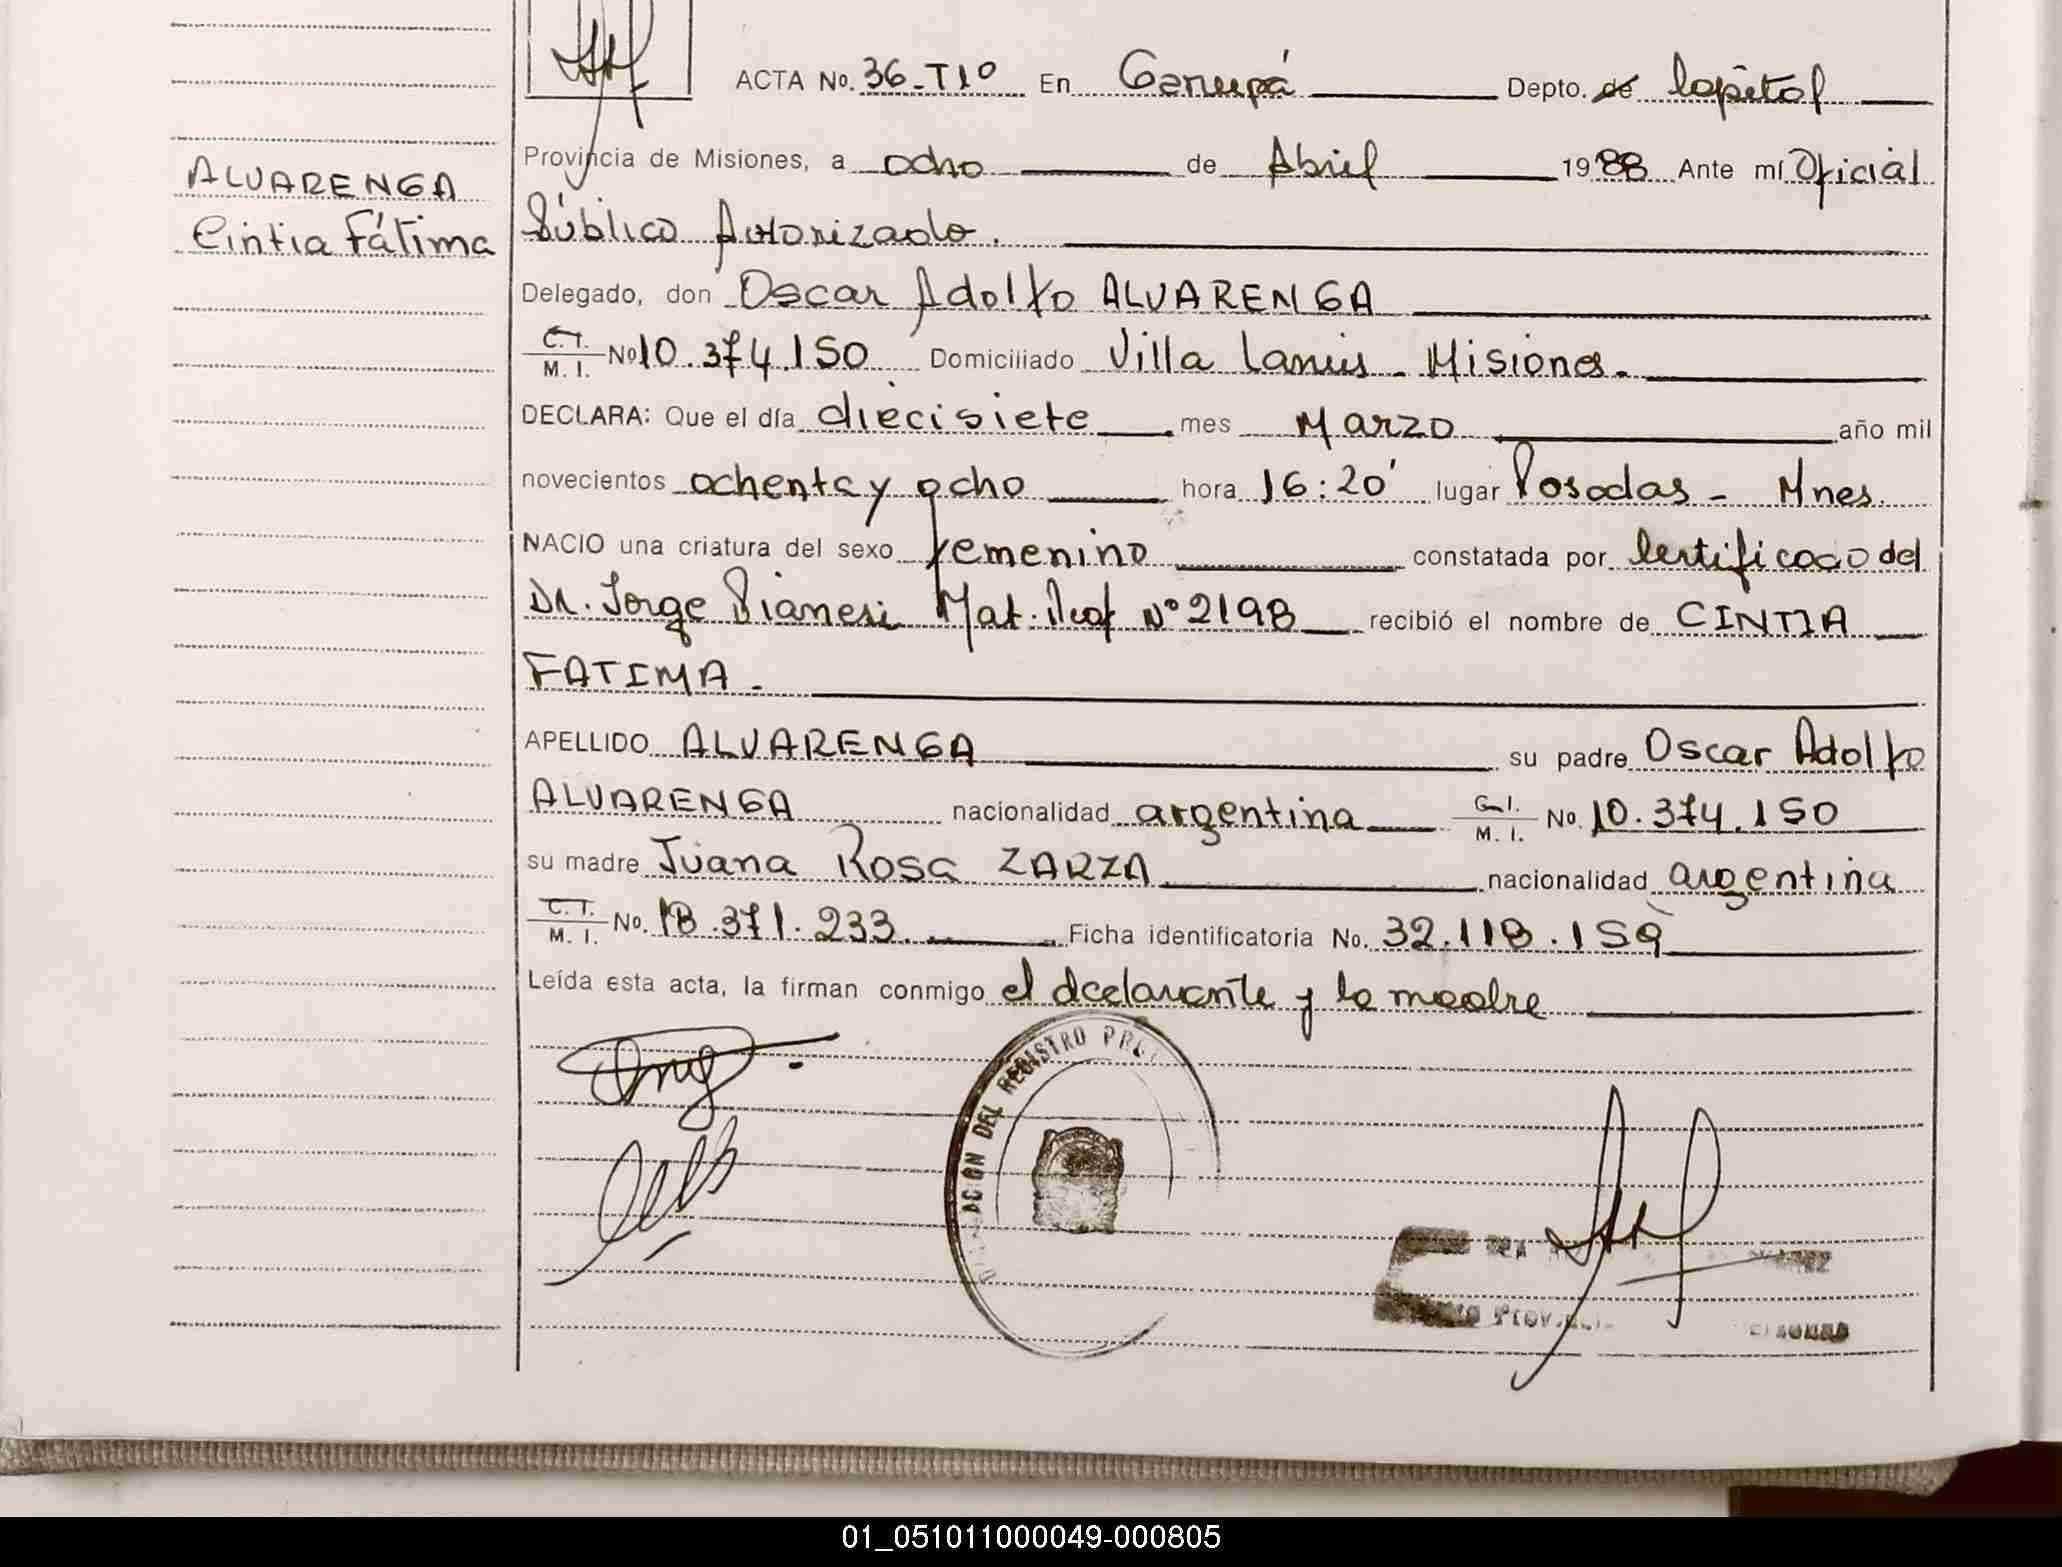 ACTA No. 36-T1º En Garupá Depto. de Capital
Provincia de Misiones, a ocho de Abril 1988 Ante mí Oficial
ALVARENGA
Cintia Fátima
Público Autorizado.
Delegado, don Oscar Adolfo ALVARENGA
C.I. M. I. Nº 10.374.150 Domiciliado Villa Lanús - Misiones.-
DECLARA: Que el día diecisiete mes Marzo año mil
novecientos ochenta y ocho hora 16:20' lugar Posadas - Mnes.
NACIO una criatura del sexo femenino constatada por Certificado del
Dr. Jorge Pianesi Mat. Prof Nº 2198 recibió el nombre de CINTIA
FATIMA -
APELLIDO ALVARENGA su padre Oscar Adolfo
ALVARENGA nacionalidad argentina C.I. M. I. No. 10.374.150
su madre Juana Rosa ZARZA nacionalidad argentina
C.I. M. I. No. 18.371.233 Ficha identificatoria No. 32.118.159
Leída esta acta, la firman conmigo el declarante y la madre
DEL REGISTRO
01_051011000049-000805